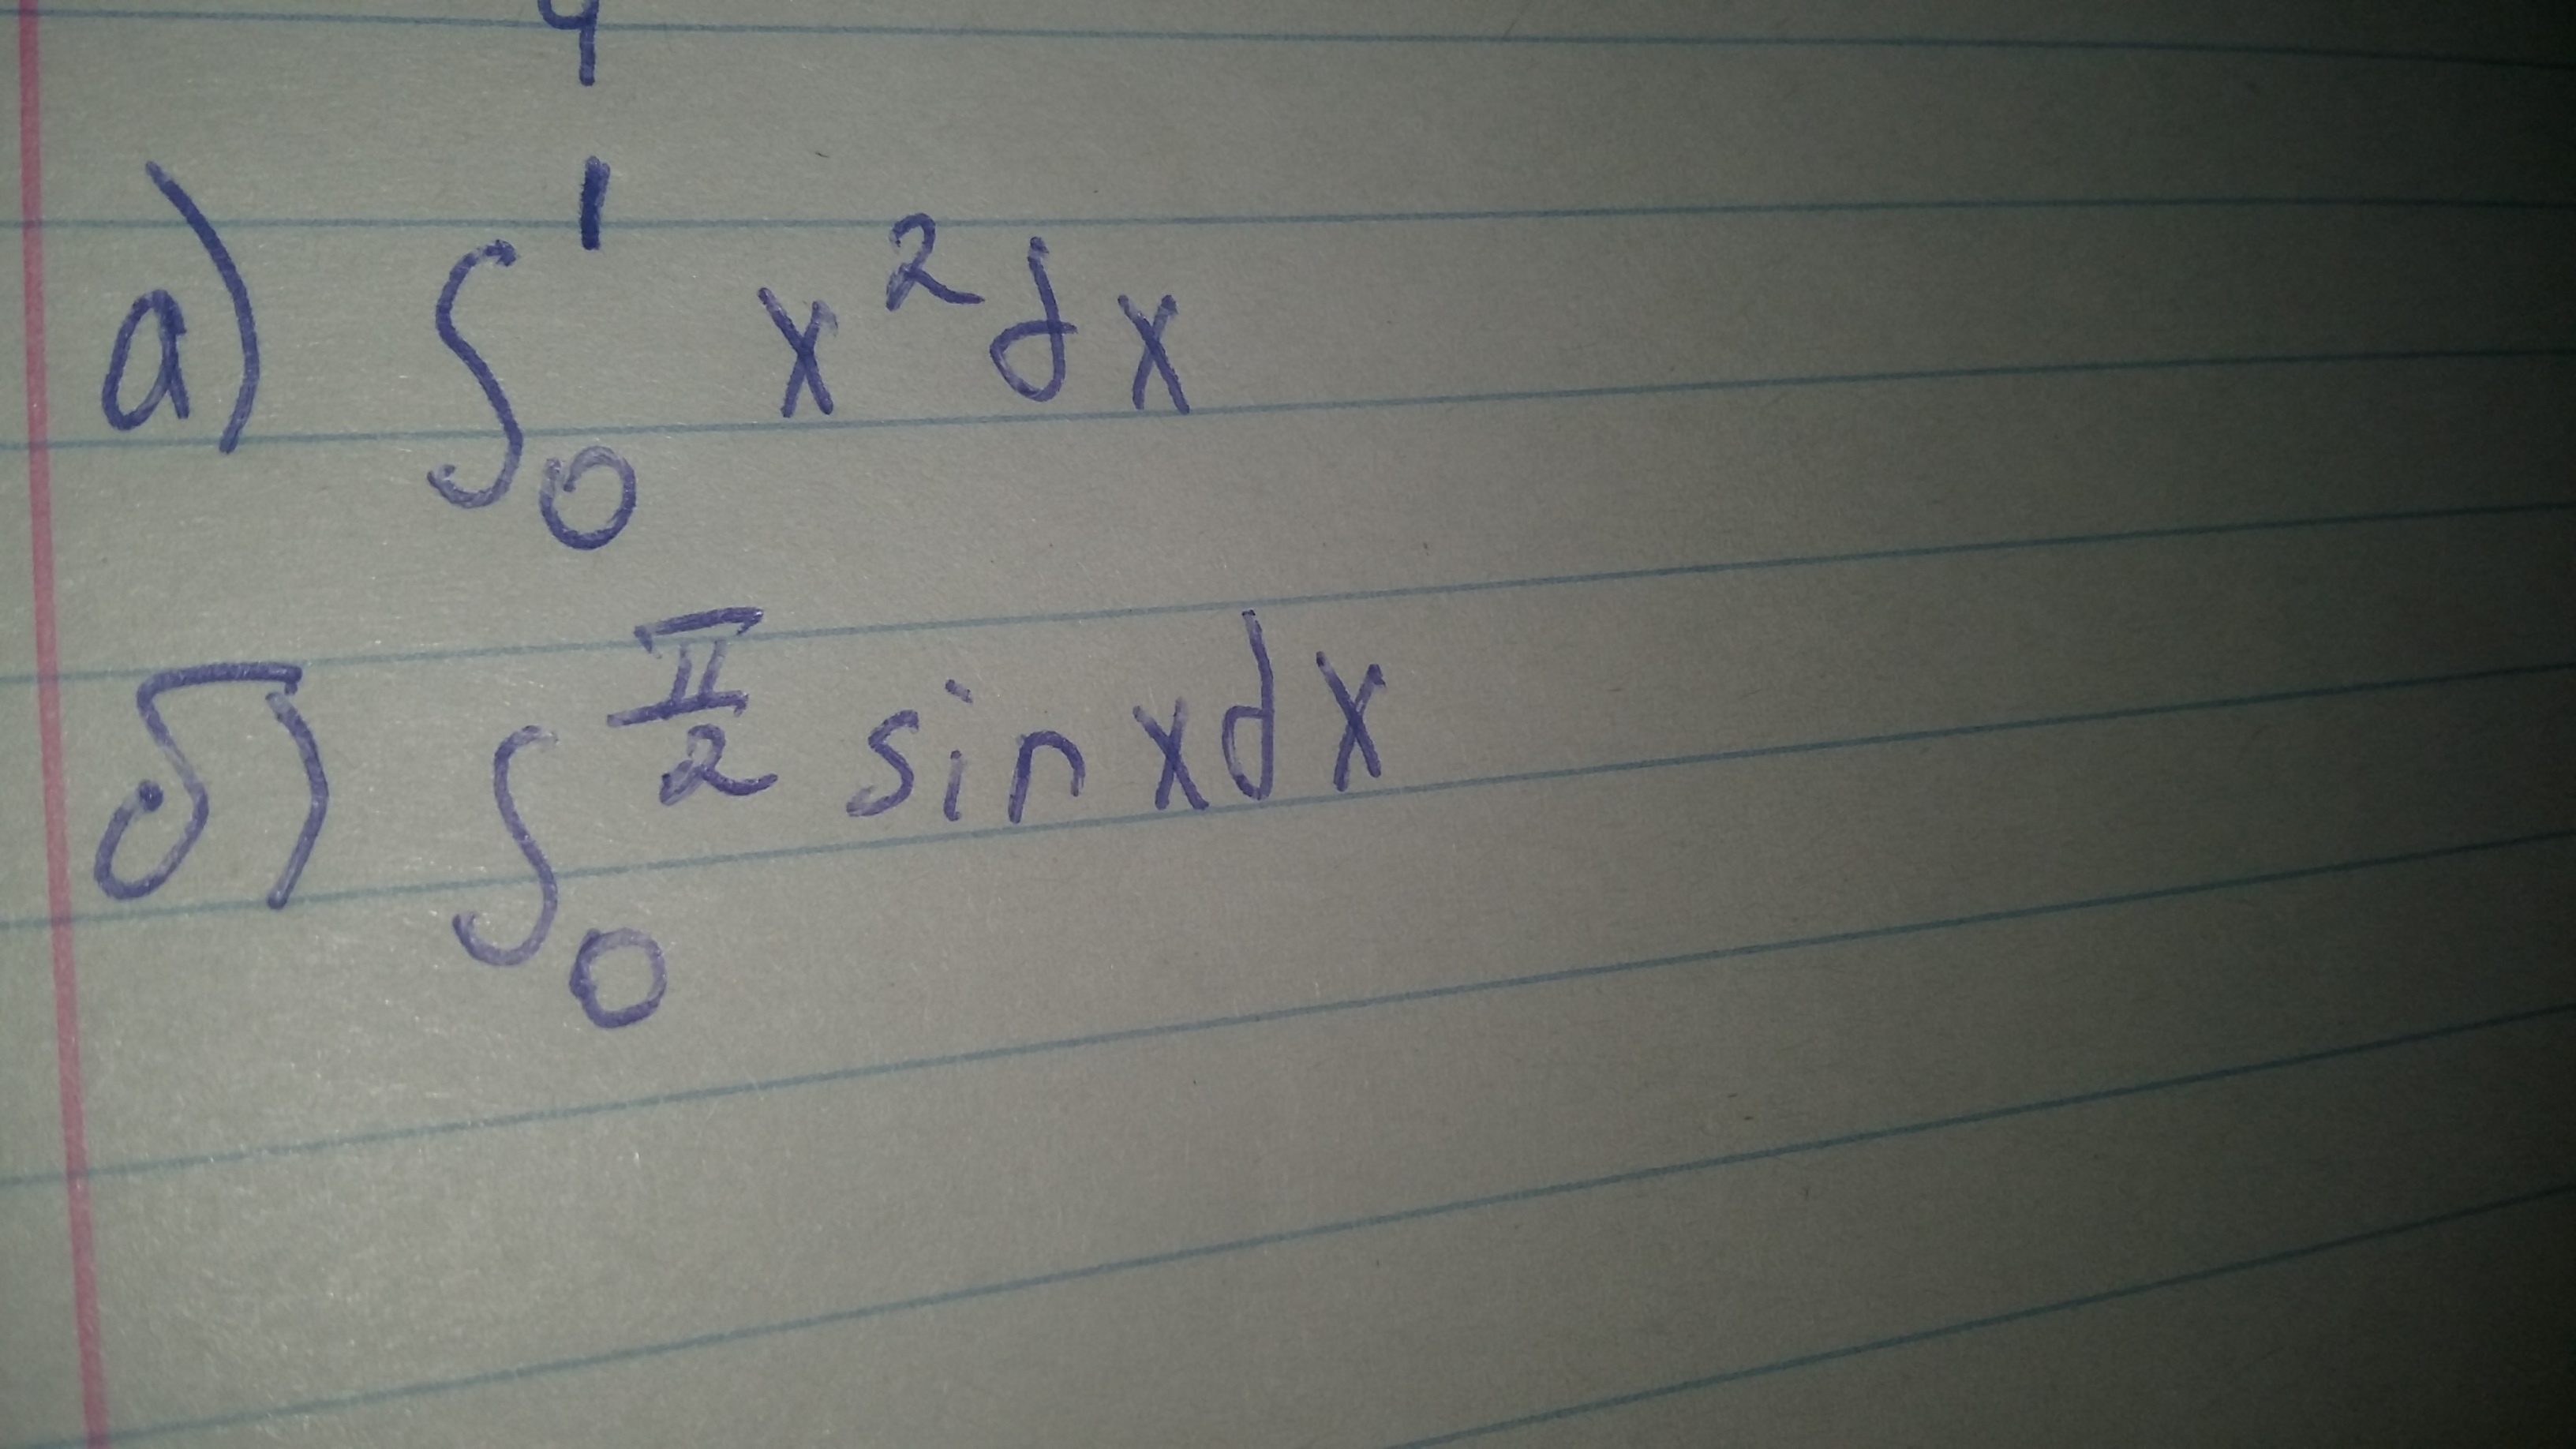 а) ∫₀¹ x²dx
б) ∫₀^(π/2) sin xdx